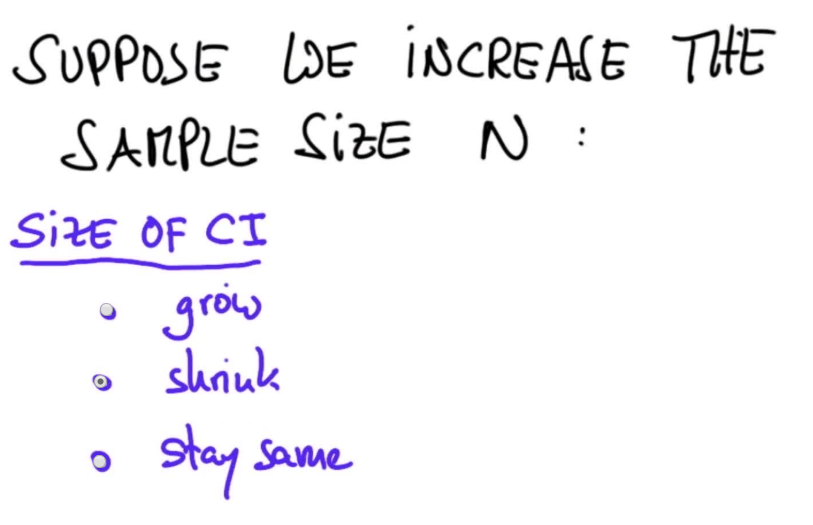 SUPPOSE WE INCREASE THE
SAMPLE SIZE N :
SIZE OF CI
grow
shrink
stay same